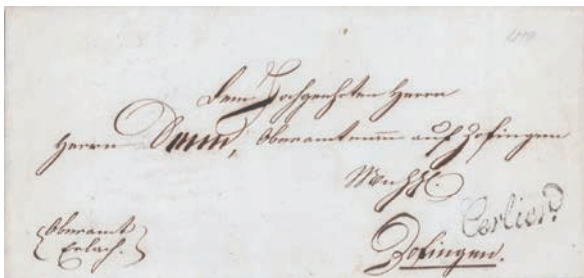 Dem Hochgeehrten Herrn
Herrn Oberamtmann auf Zofingen
Zofingen.
Cerlier.
Oberamt
Erlach.